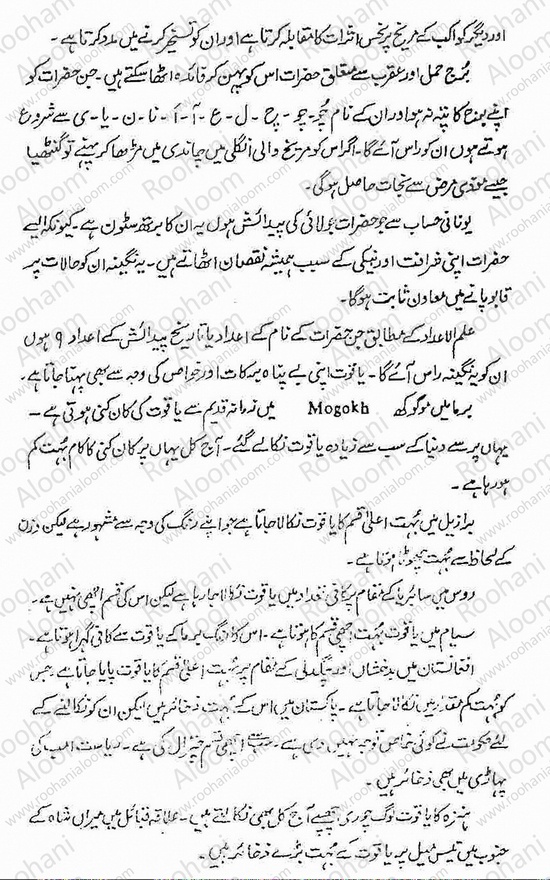 اور دیگر کواکب کے مریخ پر نحس اثرات کا مقابلہ کرتا ہے اور ان کو تسخیر کرنے میں مدد کرتا ہے۔
برج حمل اور عقرب سے متعلق حضرات اس کو پہن کر فائدہ اٹھا سکتے ہیں۔ جن حضرات کو
اپنے برج کا پتہ نہ ہو اور ان کے نام چُو۔ چو۔ چ۔ ل۔ ع۔ آ۔ اَ۔ نا۔ ن۔ یا۔ ی سے شروع
ہوتے ہوں ان کو راس آئے گا۔ اگر اس کو مریخ والی انگلی میں چاندی میں مڑھا کر پہنے تو گنٹھیا
جیسے موذی مرض سے نجات حاصل ہو گی۔
یونانی حساب سے جو حضرات جولائی کی پیدائش ہوں یہ ان کا برتھ سٹون ہے۔ کیونکہ ایسے
حضرات اپنی شرافت اور نیکی کے سبب ہمیشہ نقصان اٹھاتے ہیں۔ یہ نگینہ ان کو حالات پر
قابو پانے میں معاون ثابت ہوگا۔
علم الاعداد کے مطابق جن حضرات کے نام کے اعداد یا تاریخ پیدائش کے اعداد ۹ ہوں
ان کو یہ نگینہ راس آئے گا۔ یاقوت اپنی بے پناہ برکات اور خواص کی وجہ سے بھی پہنا جاتا ہے۔
برما میں موگوکھ Mogokh میں زمانہ قدیم سے یاقوت کی کان کنی ہوتی ہے۔
یہاں پر سے دنیا کے سب سے زیادہ یاقوت نکالے گئے۔ آج کل یہاں پر کان کنی کا کام بہت کم
ہو رہا ہے۔
برازیل میں بہت اعلیٰ قسم کا یاقوت نکالا جاتا ہے جو اپنے رنگ کی وجہ سے مشہور ہے لیکن وزن
کے لحاظ سے بہت چھوٹا ہوتا ہے۔
روس میں سائبریا کے مقام پر کافی تعداد میں یاقوت نکالا جا رہا ہے لیکن اس کی قسم اچھی نہیں ہے۔
سیام میں یاقوت بہت اچھی قسم کا ہوتا ہے۔ اس کا رنگ برما کے یاقوت سے کافی گہرا ہوتا ہے۔
افغانستان میں بدخشاں اور جگدلی کے مقام پر بہت اعلیٰ قسم کا یاقوت پایا جاتا ہے جس
کو بہت کم مقدار میں نکالا جاتا ہے۔ پاکستان میں اس کے بہت ذخائر ہیں لیکن ان کو نکالنے کے
لئے حکومت نے کوئی خاص توجہ نہیں دی ہے۔ اچھی قسم چترال کی ہے۔ ریاست امب کی
پہاڑی میں بھی ذخائر ہیں۔
ہنزہ کا یاقوت لوگ چوری چھپے آج کل بھی نکالتے ہیں۔ علاقہ قبائل میں میراں شاہ کے
جنوب میں تیس میل پر یاقوت کے بہت بڑے ذخائر ہیں۔